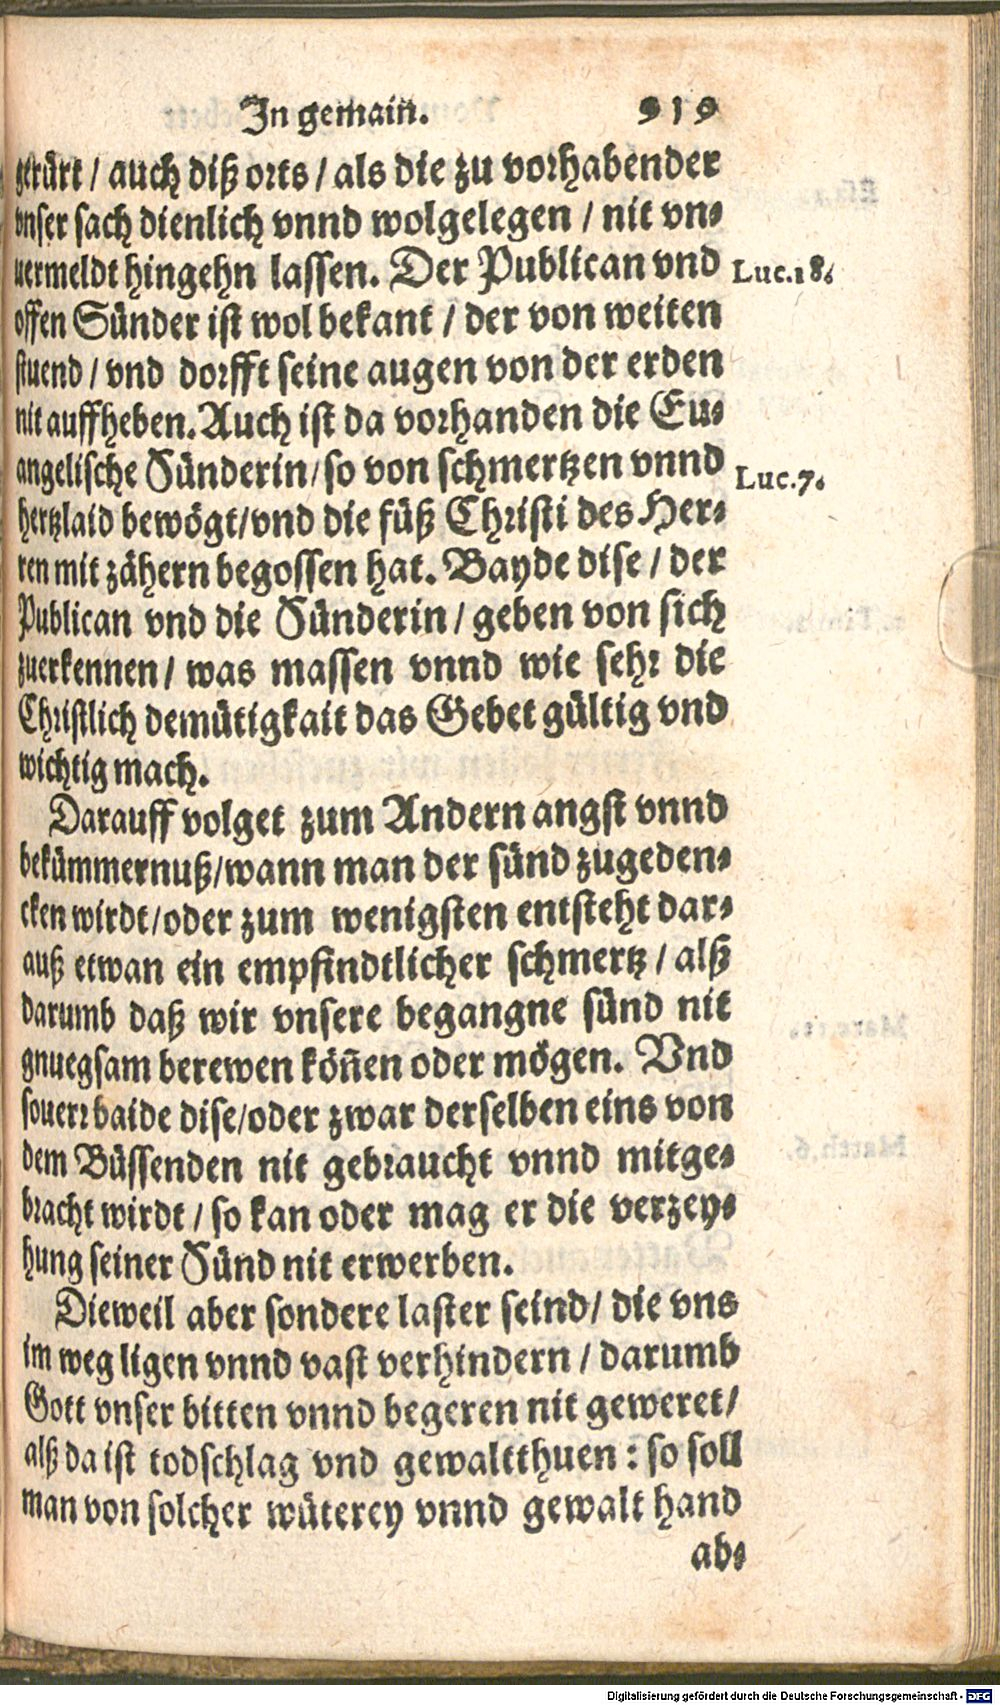 In gemain. 919
gerürt / auch diß orts / als die zu vorhabender
vnser sach dienlich vnnd wolgelegen / nit vn⸗
uermeldt hingehn lassen. Der Publican vnd Luc.18.
offen Sünder ist wol bekant / der von weiten
stuend / vnd dorfft seine augen von der erden
nit auffheben. Auch ist da vorhanden die Eu⸗
angelische Sünderin / so von schmertzen vnnd Luc.7.
hertzlaid bewögt / vnd die füß Christi des Her⸗
ren mit zähern begossen hat. Bayde dise / der
Publican vnd die Sünderin / geben von sich
zuerkennen / was massen vnnd wie sehr die
Christlich demütigkait das Gebet gültig vnd
wichtig mach.
Darauff volget zum Andern angst vnnd
bekümmernuß / wann man der sünd zugeden⸗
cken wirdt / oder zum wenigsten entsteht dar⸗
auß etwan ein empfindtlicher schmertz / alß
darumb daß wir vnsere begangne sünd nit
gnuegsam berewen köñen oder mögen. Vnd
souerr baide dise / oder zwar derselben eins von
dem Büssenden nit gebraucht vnnd mitge⸗
bracht wirdt / so kan oder mag er die verzey⸗
hung seiner Sünd nit erwerben.
Dieweil aber sondere laster seind / die vns
im weg ligen vnnd vast verhindern / darumb
Gott vnser bitten vnnd begeren nit geweret /
alß da ist todschlag vnd gewaltthuen : so soll
man von solcher wüterey vnnd gewalt hand
ab⸗
Digitalisierung gefördert durch die Deutsche Forschungsgemeinschaft - DFG